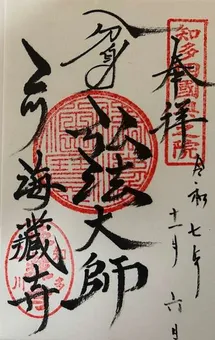 知多四國
奉拝
令和七年
十一月六日
分身
弘法大師
乙川
海藏寺